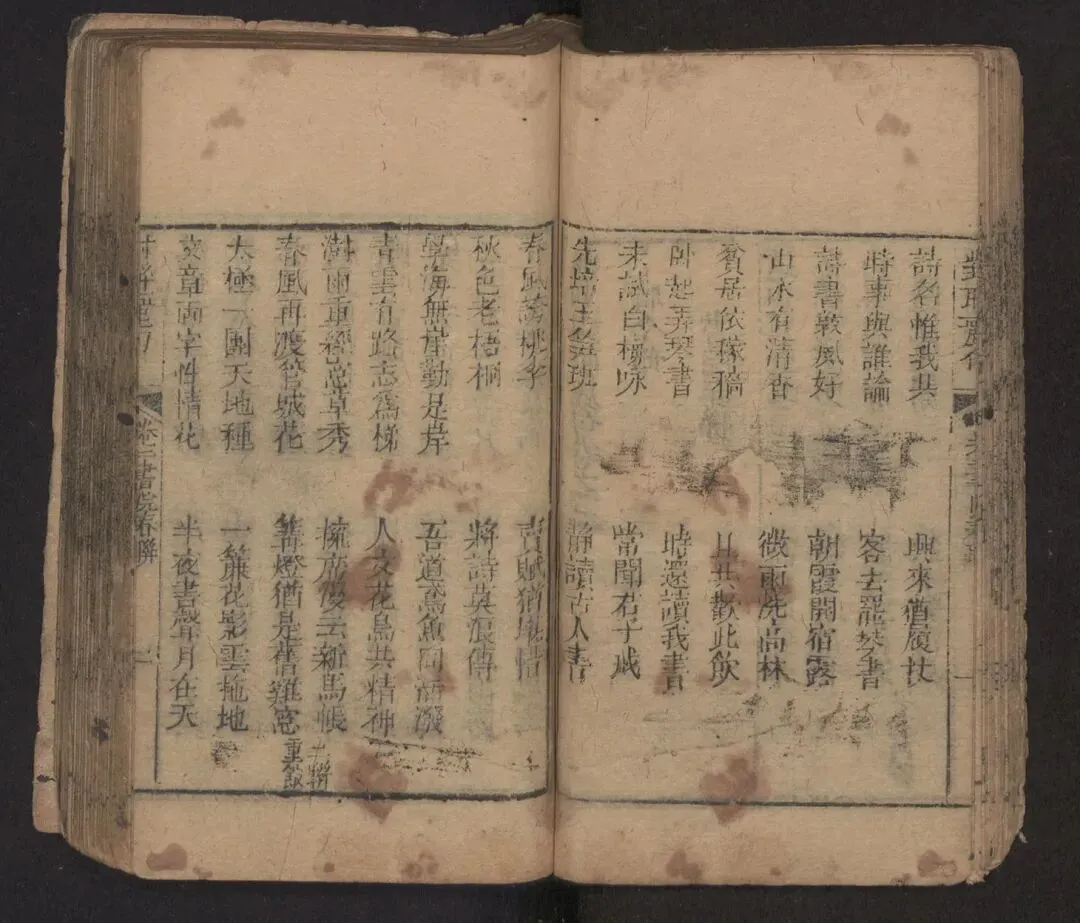 詩名惟我共　興來猶屐杖
時事與誰論　客去罷琴書
詩書敦風好　朝霞開宿露
山水有清香　微雨洗高林
貧居依稼穡　日共歡此飲
卧起弄琴書　時還讀我書
未試白櫻咏　嘗聞君子戒
先培玉筍班　靜讀古人書
春風誇桃李　賣賦猶堪惜
秋色老梧桐　將詩莫浪傳
學海無崖勤是岸　吾道鳶魚同活潑
青雲有路志爲梯　人文花鳥共精神
澍雨重經窓草秀　擁新馬帳　二聯
春風再渡管城花　篝燈猶是舊雞窓　重館
太極一團天地種　一簾花影雲拖地
文章兩字性情花　半夜書聲月在天
卷三書院春聯　一